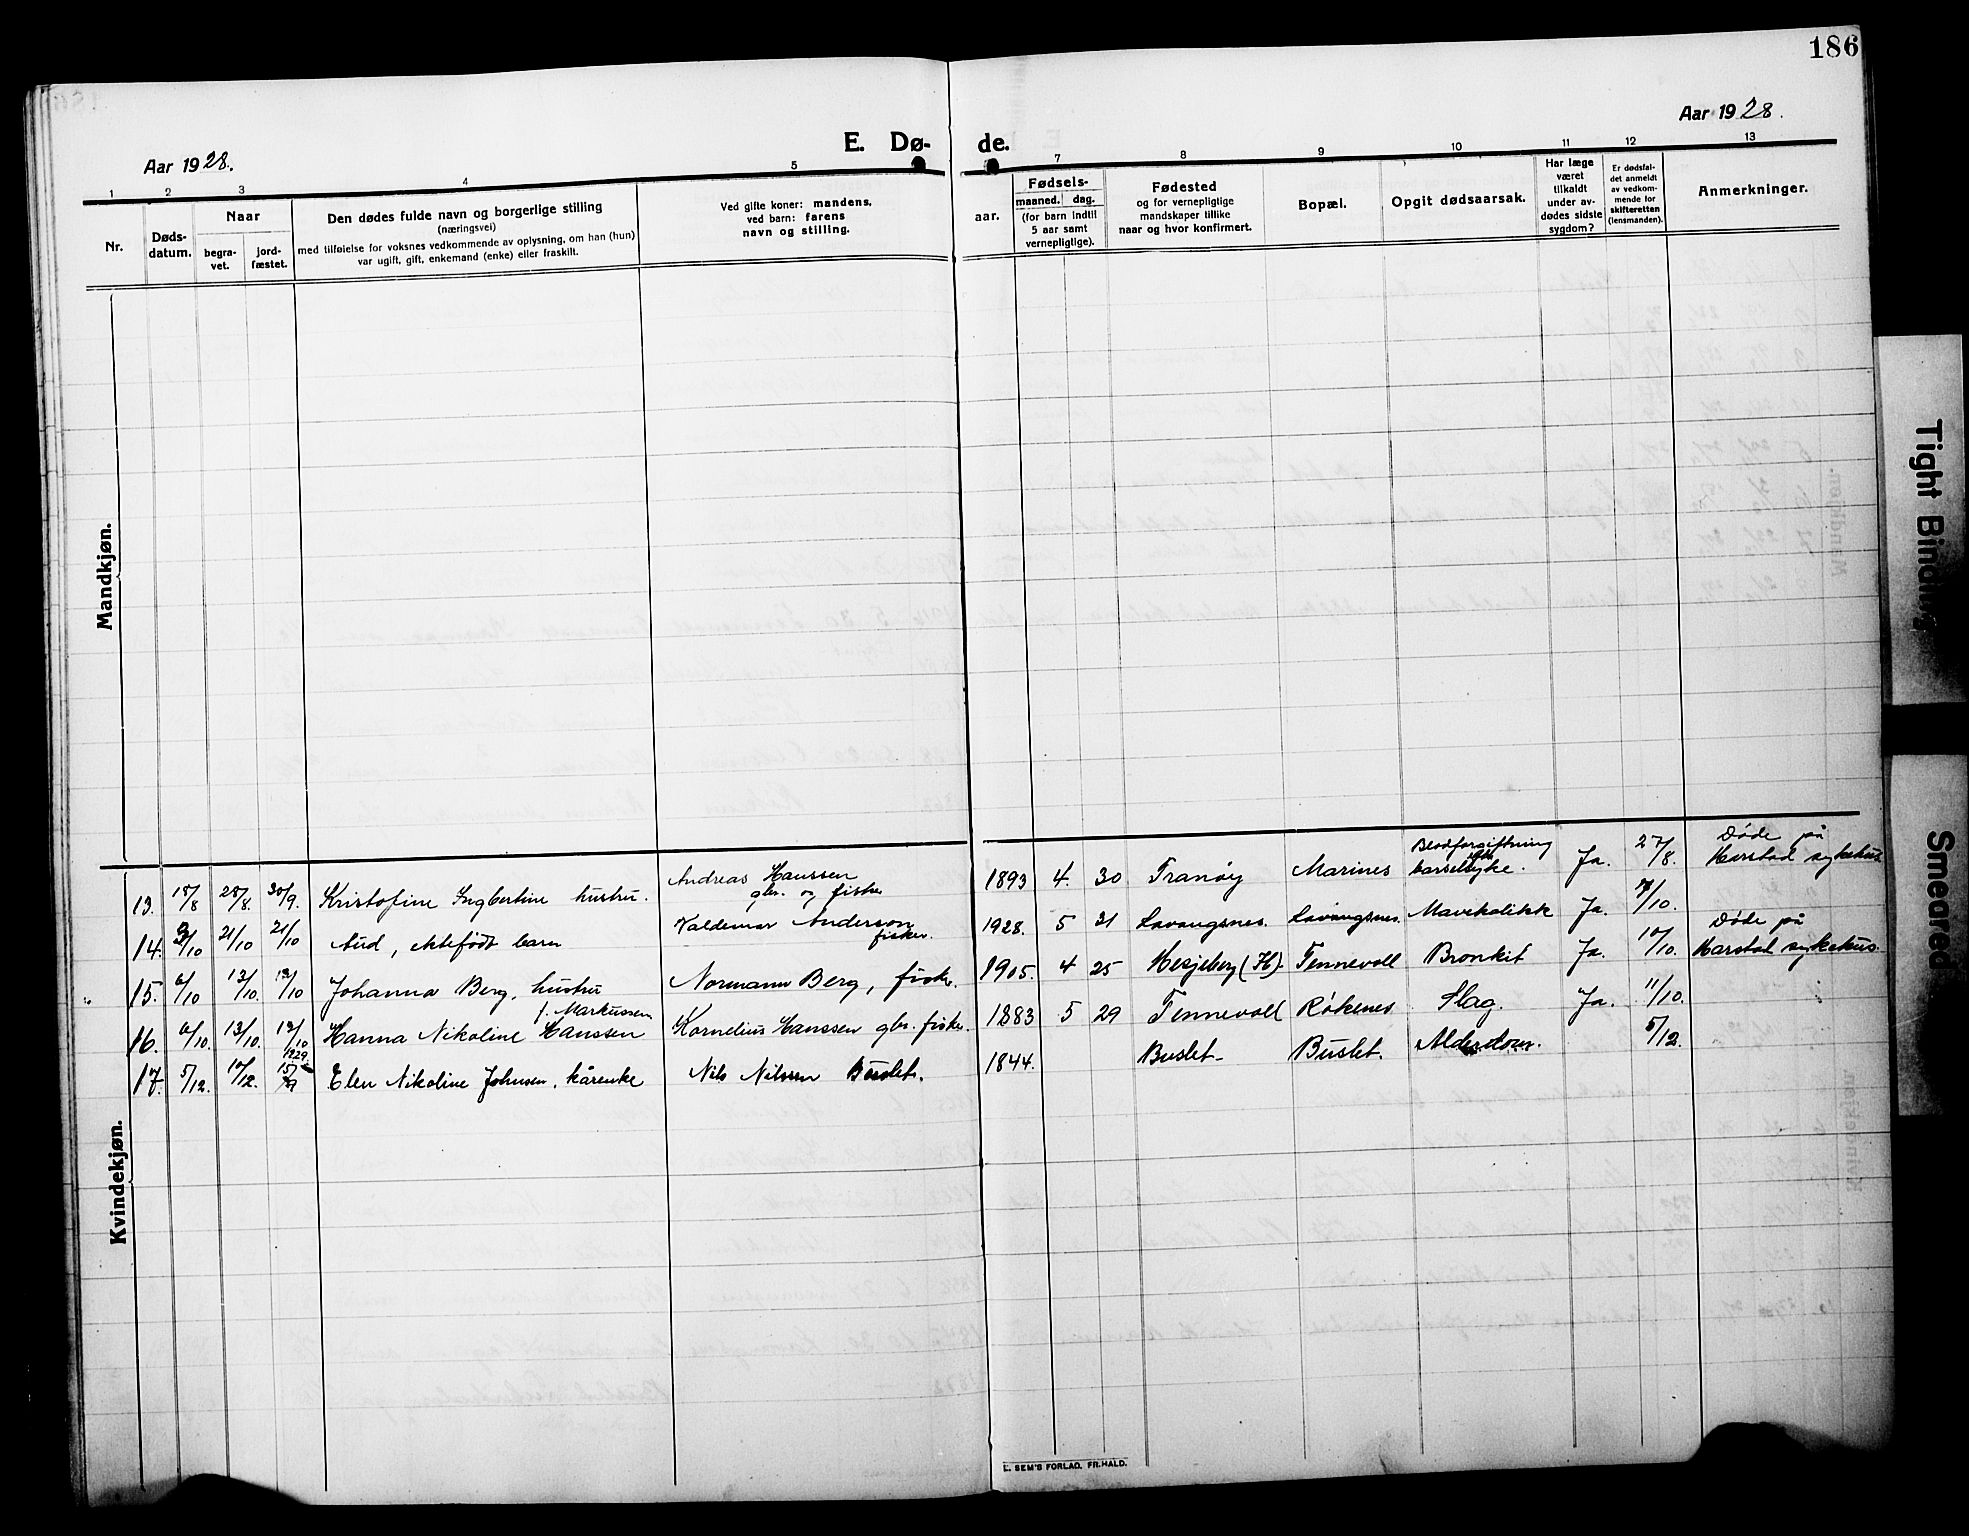 186
Aar 1928.
Aar 1928.
E. Dø- de.
1 2 3 4 5 7 8 9 10 11 12 13
Nr.
Døds-
datum.
Naar
begra-
vet.
jord-
fæstet.
Den dødes fulde navn og borgerlige stilling
(næringsvei)
med tilføielse for voksnes vedkommende av oplysning, om han (hun)
var ugift, gift, enkemand (enke) eller fraskilt.
Ved gifte koner: mandens,
ved barn: farens
navn og stilling.
aar.
Fødsels-
maaned. dag.
(for barn indtil
5 aar samt
vernepligtige).
Fødested
og for vernepligtige
mandskaper tillike
naar og hvor konfirmert.
Bopæl.
Opgit dødsaarsak.
Har læge
været
tilkaldt
under av-
dødes sidste
sygdom?
Er dødsfal-
det anmeldt
av vedkom-
mende for
skifteretten
(lensmanden).
Anmerkninger.
Mandkjøn.
Kvindekjøn.
13. 18/8 28/8. 30/9. Kristofine Ingbertine hustru. Andreas Hanssen gbr. og fisker 1893 4. 30 Tranøy Marines Blodforgiftning barselsyke. Ja. 27/8. Døde på Harstad sykehus
14. /10 21/10 21/10 Aud, ektefødt barn Valdemar Anderson fisker. 1928. 5 21 Lavangsnes. Lavangsnes. Mavekolikk Ja. /10.
15. 6/10 13/10. /10 Johanna Berg, hustru f. Markussen Normann Berg, fisker. 1905. 4 25 Hesjeberg (H). Tennevoll Bronkit Ja. 10/10. Døde på Harstad sykehus.
16. 6/10. 13/10. /10 Hanna Nikoline Hanssen Kornelius Hanssen gbr. fisker. 1883 5 29 Tennevoll Røkenes Slag. Ja. 11/10.
17. 5/12. 10/12. 1929. Elen Nikoline Johnsen, kårenke Nils Nilssen Buslet. 1844. Buslet Buslet. Alderdom. 5/12.
E. SEM'S FORLAG. FR.HALD.
Tight Binding
Smeared